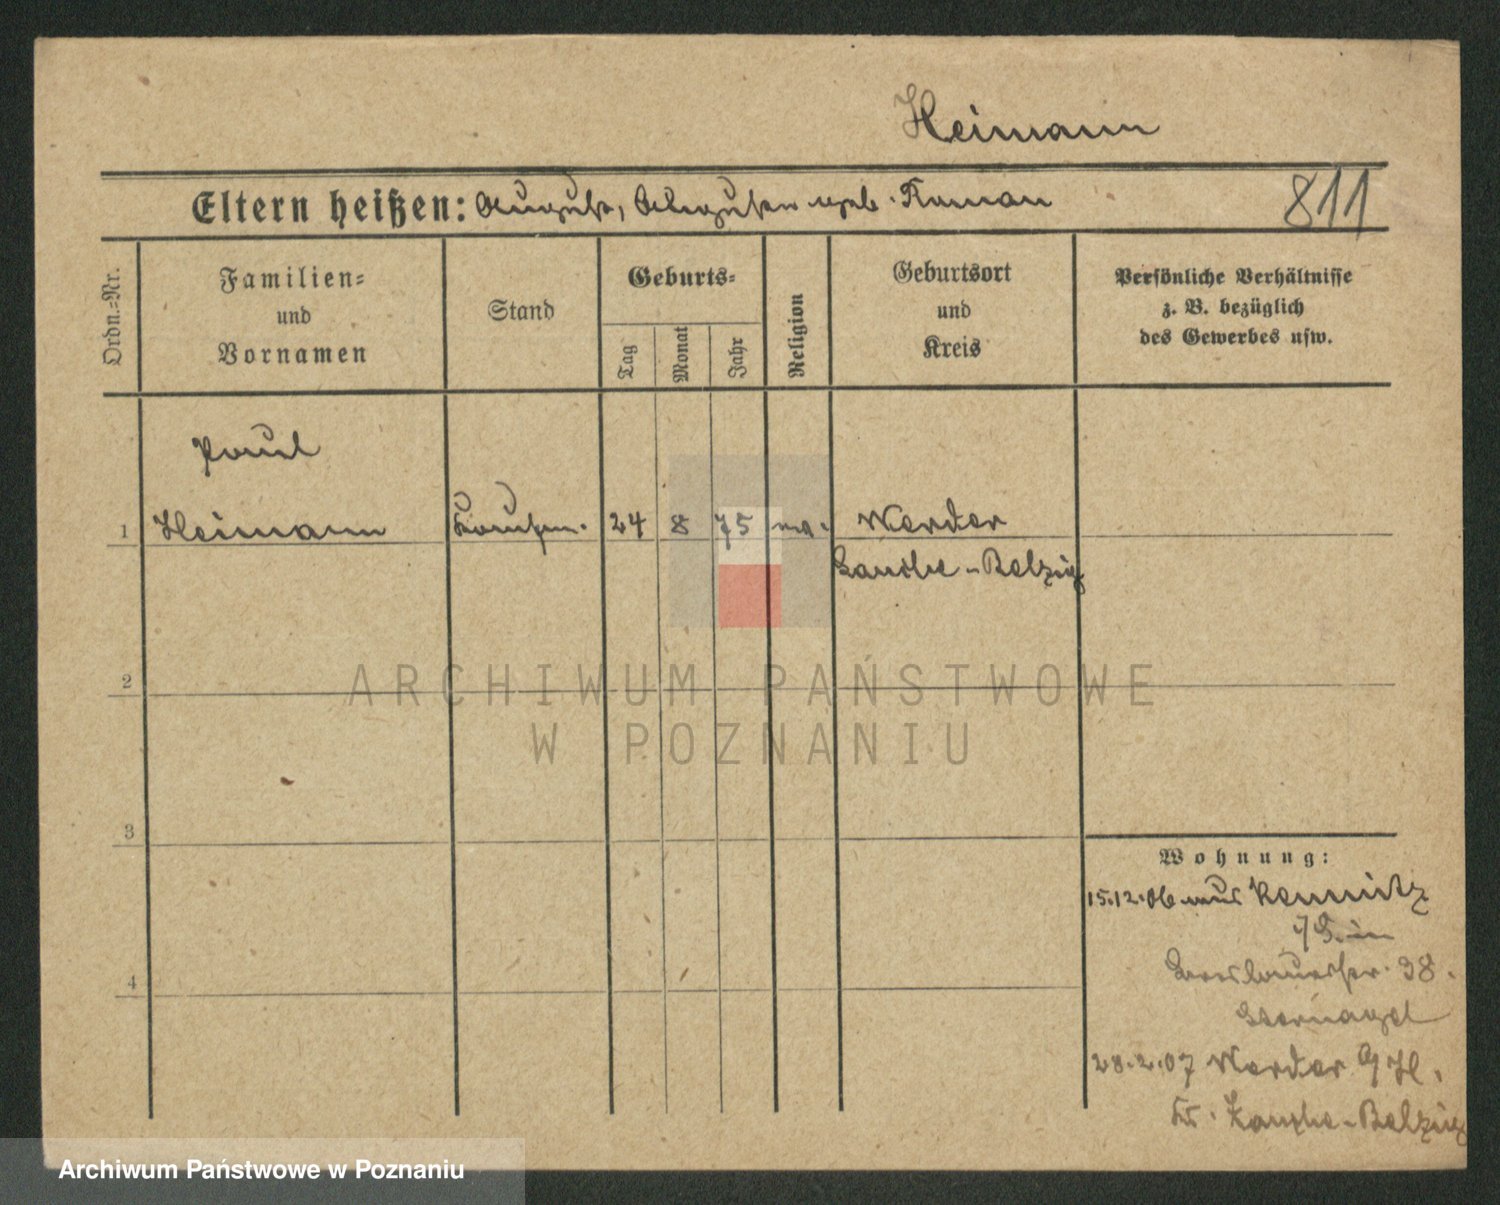 Heimann
Eltern heißen: August, Auguste geb. Roman
811
Ordn.=Nr.
Familien=
und
Vornamen
Stand
Geburts=
Tag
Monat
Jahr
Religion
Geburtsort
und
Kreis
Persönliche Verhältnisse
z. B. bezüglich
des Gewerbes usw.
Paul
1 Heimann 24 8 75 Werder
Zauche-Belzig
2
3
4
Wohnung:
15.12.06 aus
Breslauerstr. 38.
28.2.07 Werder a/H.
Kr. Zauche-Belzig
ARCHIWUM PAŃSTWOWE
W POZNANIU
Archiwum Państwowe w Poznaniu